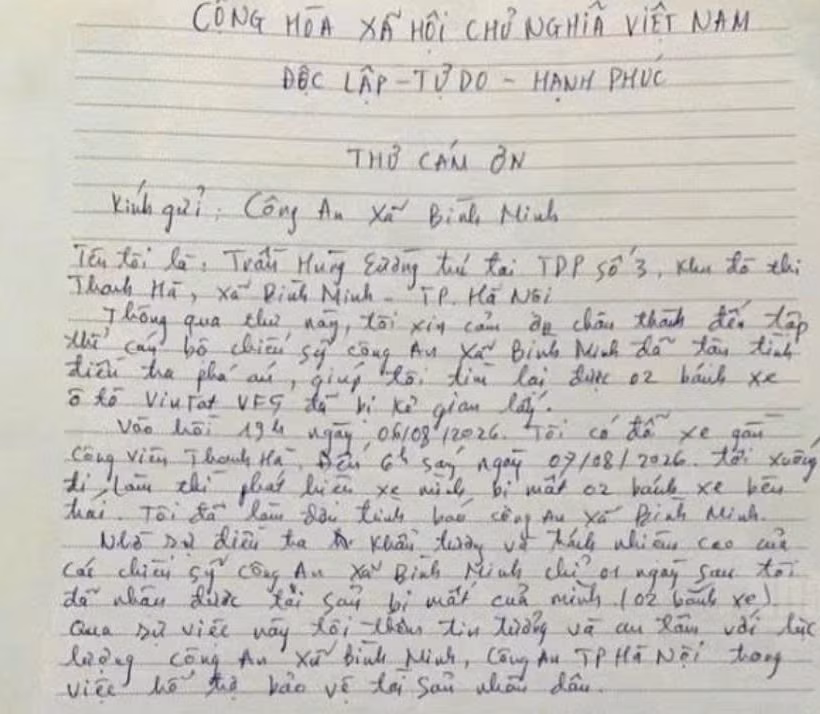 CỘNG HÒA XÃ HỘI CHỦ NGHĨA VIỆT NAM
ĐỘC LẬP - TỰ DO - HẠNH PHÚC
THƯ CẢM ƠN
Kính gửi: Công An Xã Bình Minh
Tên tôi là: Trần Hưng trú tại TDP số 3, khu đô thị
Thanh Hà, Xã Bình Minh - TP. Hà Nội
Thông qua thư này, tôi xin cảm ơn chân thành đến tập
thể cán bộ chiến sỹ công An Xã Bình Minh đã tận tình
điều tra phá án, giúp tôi tìm lại được 02 bánh xe
ô tô VinFat VF5 đã bị kẻ gian lấy.
Vào hồi 19h ngày 06/08/2026. Tôi có đỗ xe gần
Công viên Thanh Hà. Đến 6h sáng ngày 07/08/2026. tôi xuống
đi làm thì phát hiện xe mình bị mất 02 bánh xe bên
trái. Tôi đã làm đơn trình báo công An xã Bình Minh.
Nhờ sự điều tra khẩn trương và trách nhiệm cao của
các chiến sỹ công An Xã Bình Minh chỉ 01 ngày sau tôi
đã nhận được tài sản bị mất của mình (02 bánh xe)
Qua sự việc này tôi thêm tin tưởng và an tâm với lực
lượng công An Xã Bình Minh, Công An TP Hà Nội trong
việc hỗ trợ bảo vệ tài sản nhân dân.